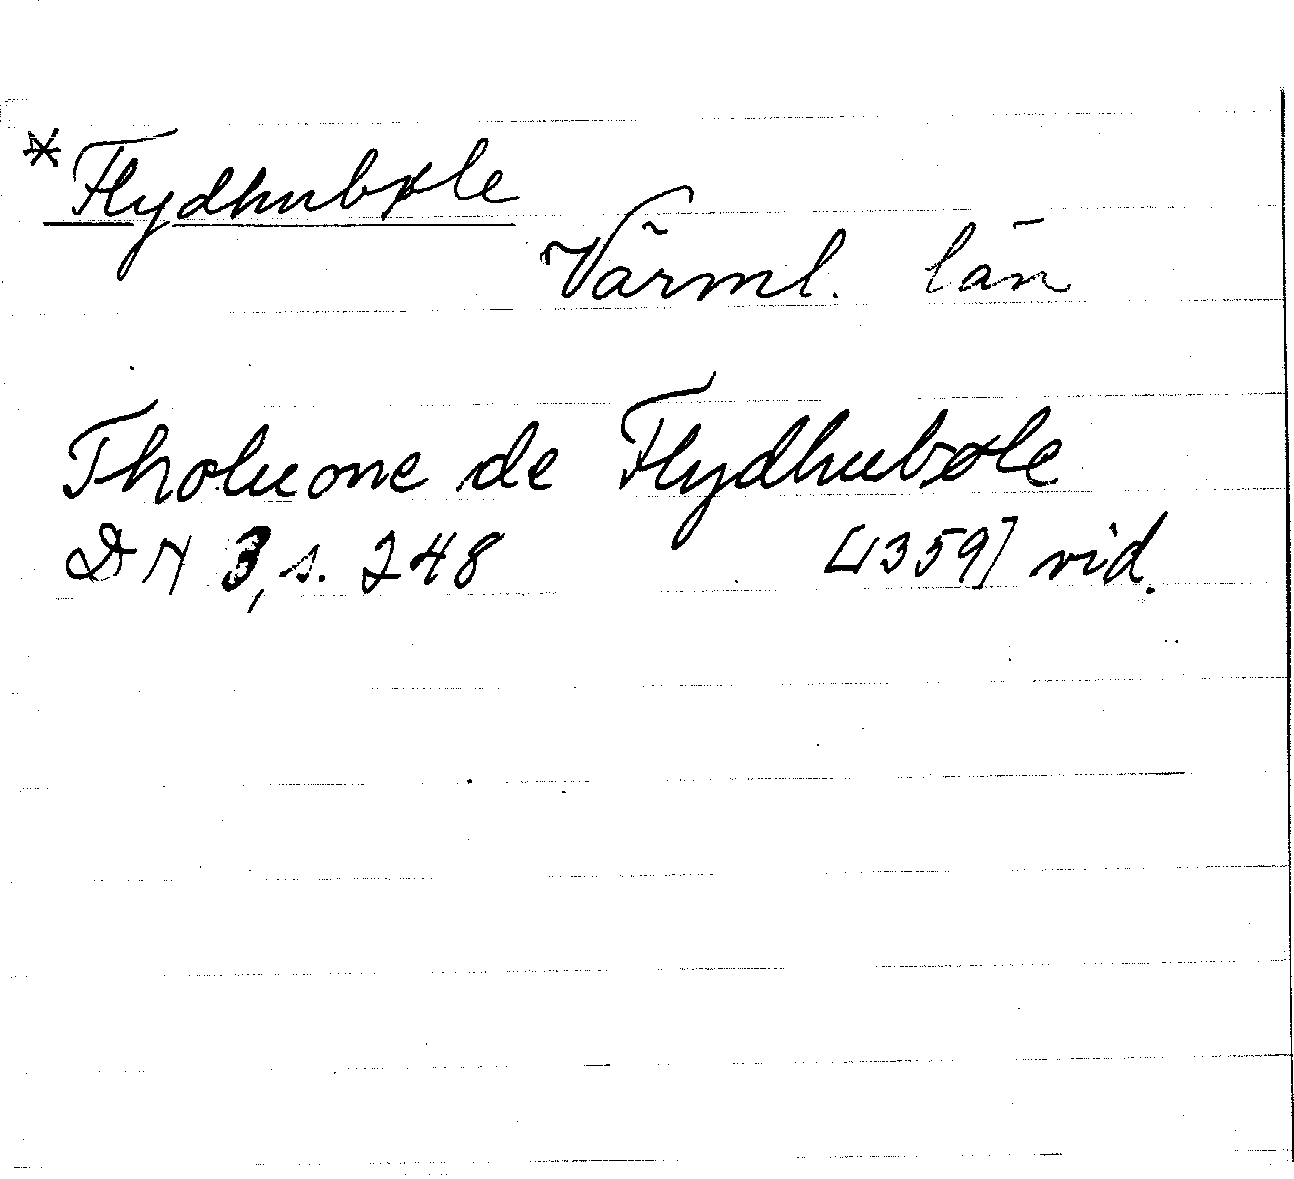 *Flydhubøle
Värml. län
Tholuone de Flydhubøle
DN 3, s. 248 [1359] vid.